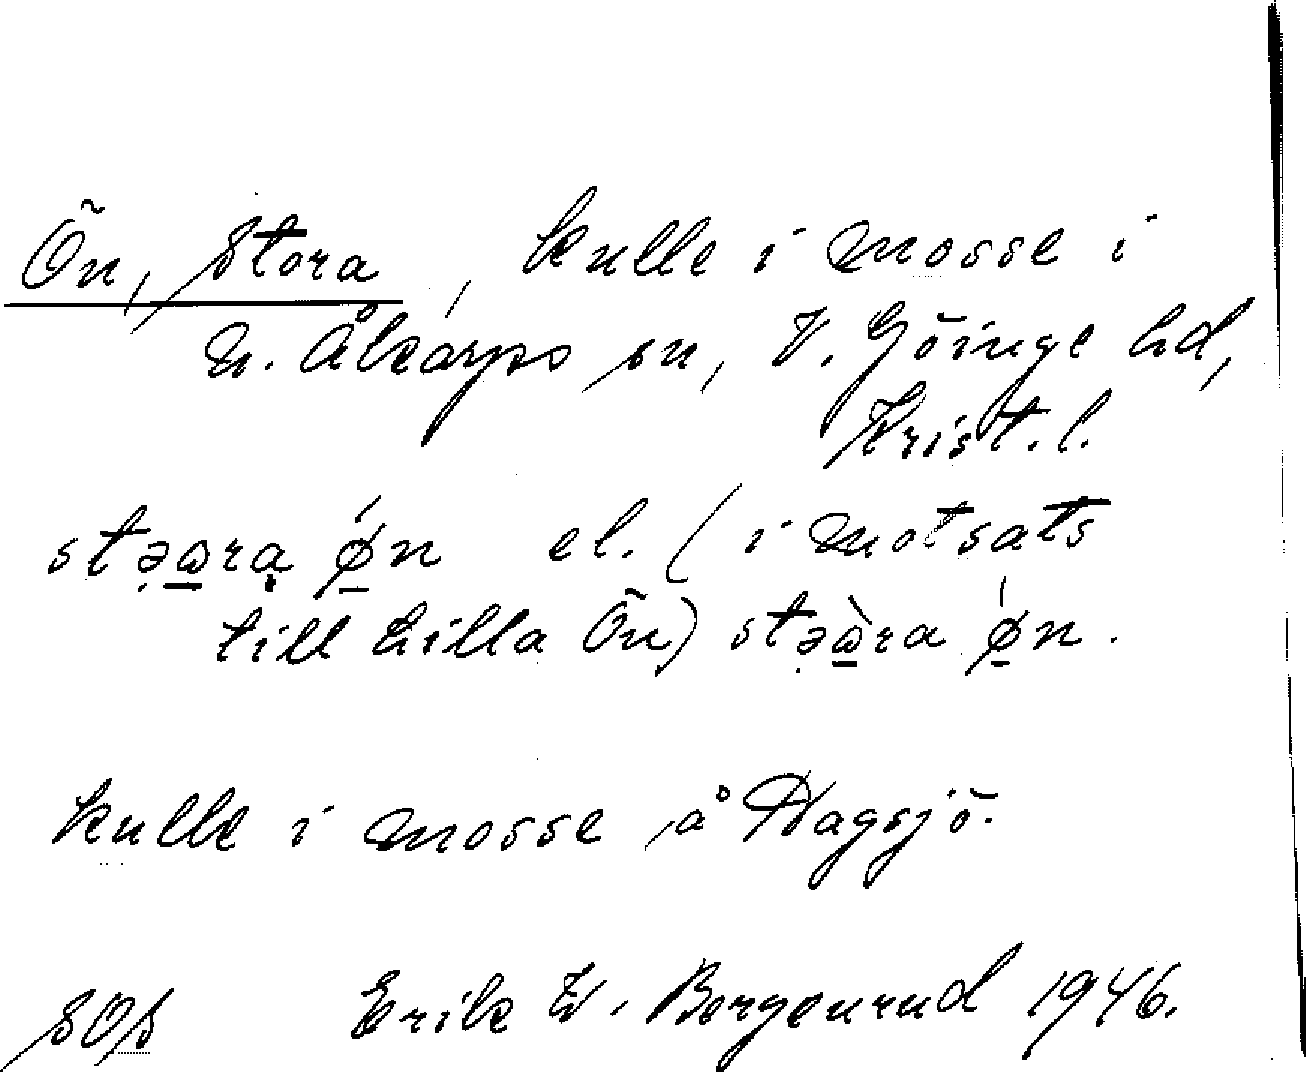 Ön, Stora, kulle i mosse i
N. Åkarps sn, V. Göinge hd,
Krist. l.
stə̣ω̲ra̤ ǿ̲n el. (i motsats
till Lilla Ön) stə̣ὼ̲ra ǿ̲n.
kulle i mosse å Hagsjö.
SOS Erik W. Borgenrud 1946.